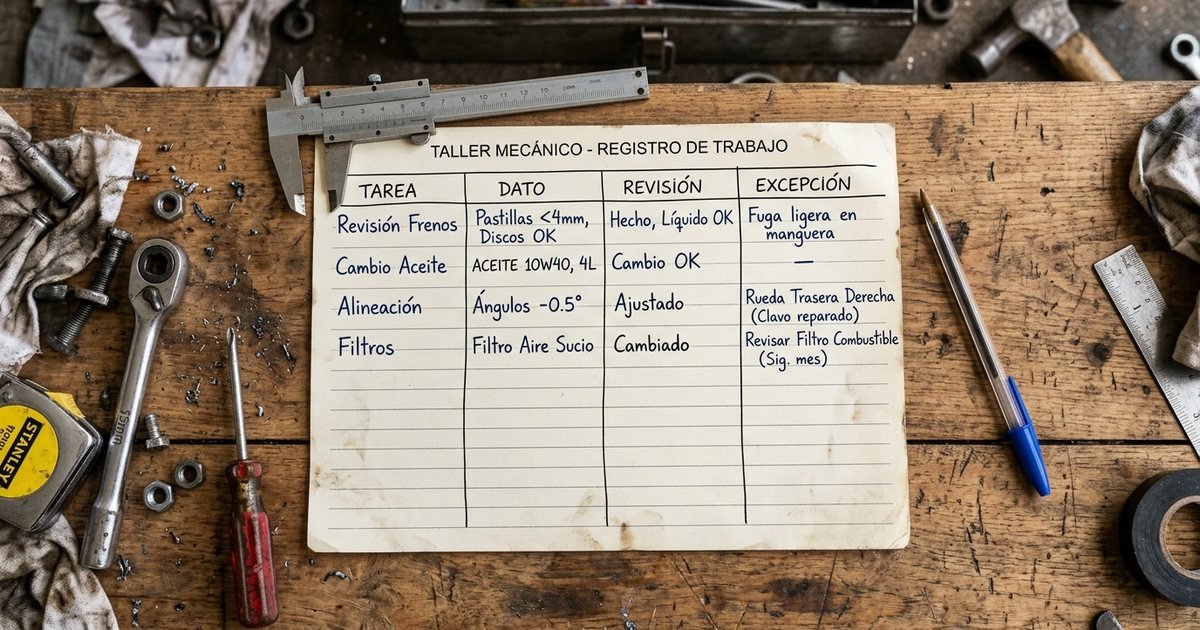 TALLER MECÁNICO - REGISTRO DE TRABAJO
TAREA DATO REVISIÓN EXCEPCIÓN
Revisión Frenos Pastillas <4mm, Discos OK Hecho, Líquido OK Fuga ligera en manguera
Cambio Aceite ACEITE 10W40, 4L Cambio OK —
Alineación Ángulos -0.5° Ajustado Rueda Trasera Derecha (Clavo reparado)
Filtros Filtro Aire Sucio Cambiado Revisar Filtro Combustible (Sig. mes)
STANLEY